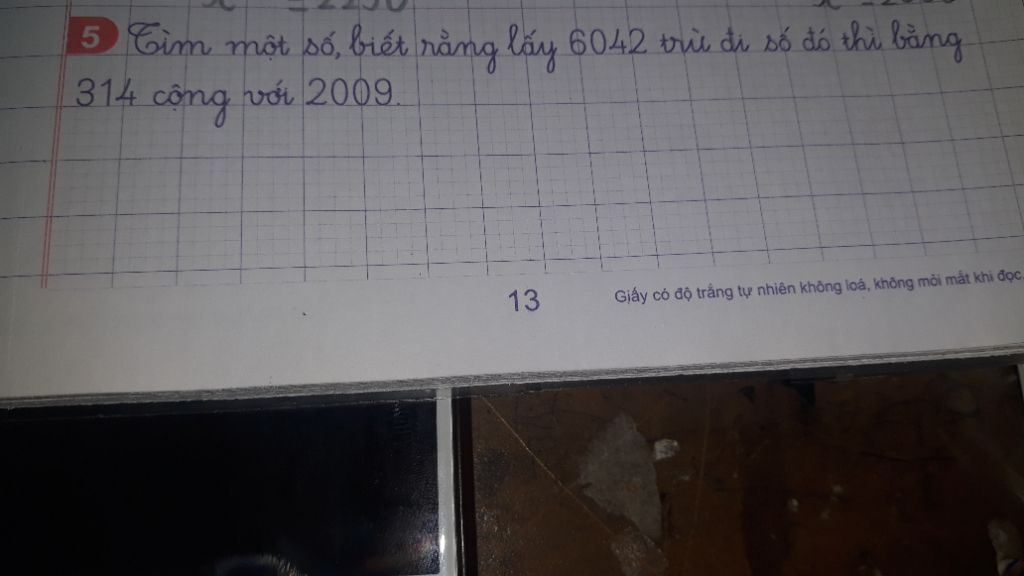 5 Tìm một số, biết rằng lấy 6042 trừ đi số đó thì bằng
314 cộng với 2009.
13
Giấy có độ trắng tự nhiên không loá, không mỏi mắt khi đọc.